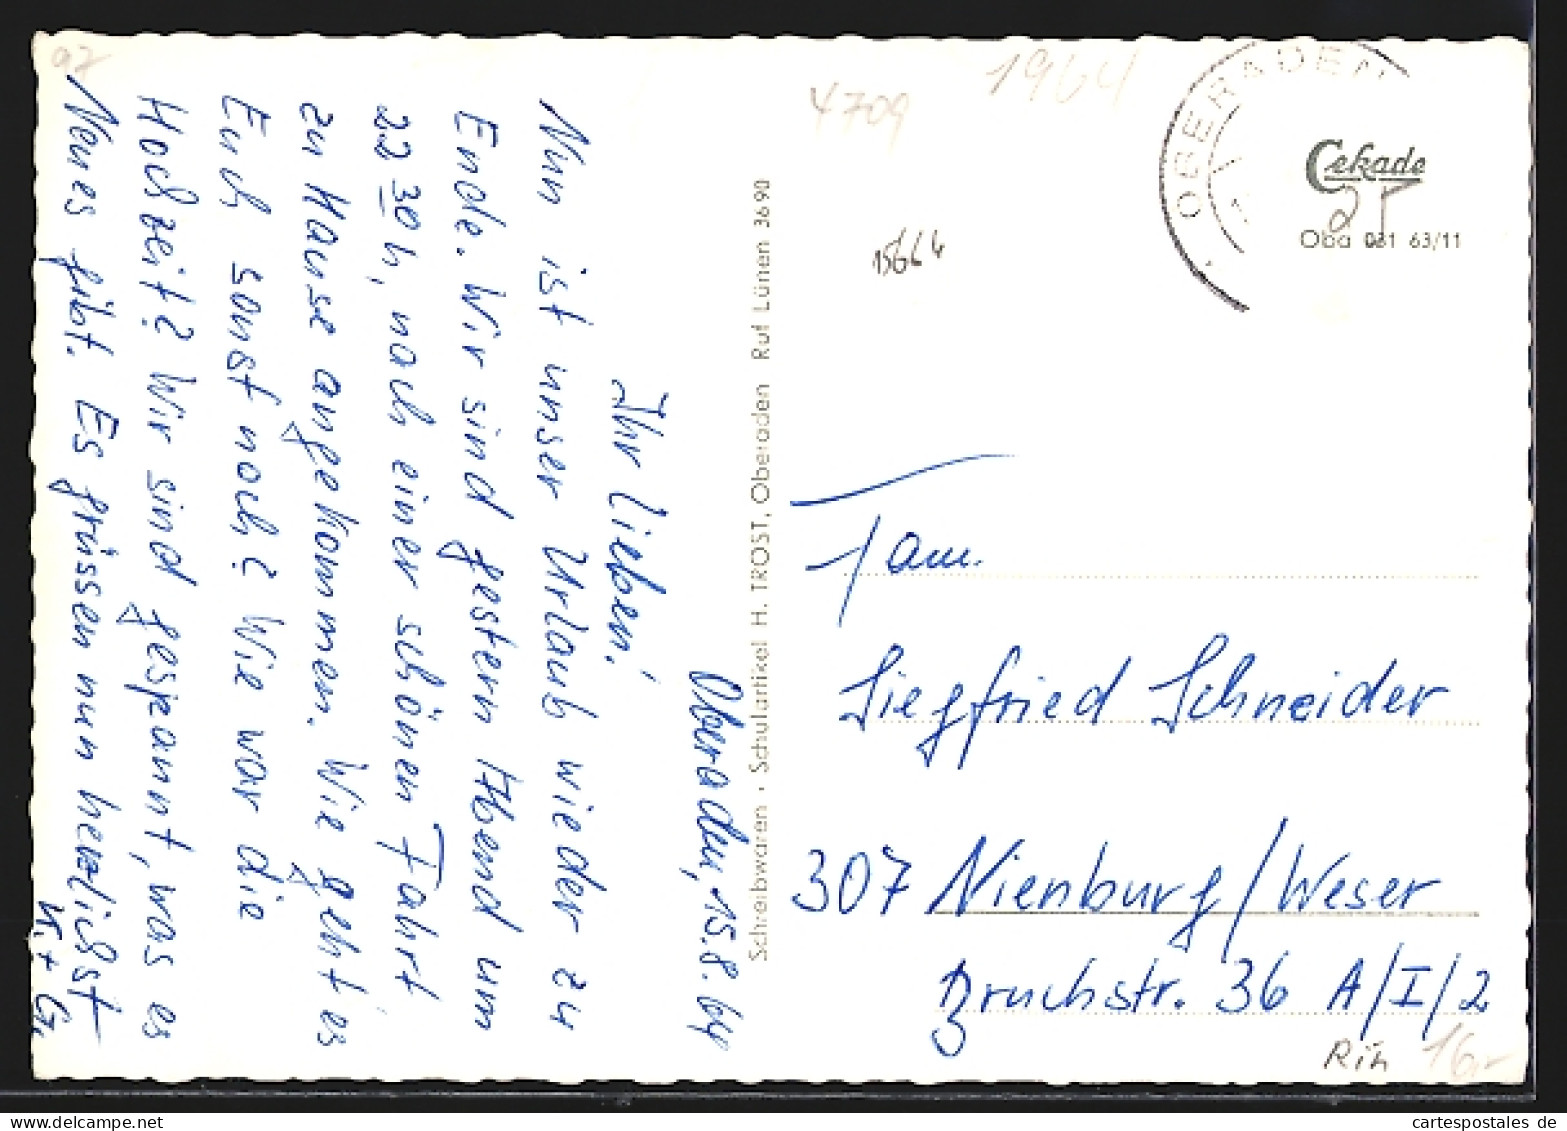 Oberaden, 15.8.64
Ihr Lieben!
Nun ist unser Urlaub wieder zu
Ende. Wir sind gestern Abend um
22 30 h, nach einer schönen Fahrt
zu Hause angekommen. Wie geht es
Euch sonst noch? Wie war die
Hochzeit? Wir sind gespannt, was es
Neues gibt. Es grüssen nun herzlichst
K. + G.
Schreibwaren · Schulartikel H. TROST, Oberaden Ruf Lünen 3690
97
4709
1964
OBERADEN
Cekade
25
Oba 031 63/11
15664
Fam.
Siegfried Schneider
307 Nienburg/Weser
Bruchstr. 36 A/I/2
Rih
16,-
cartespostales de